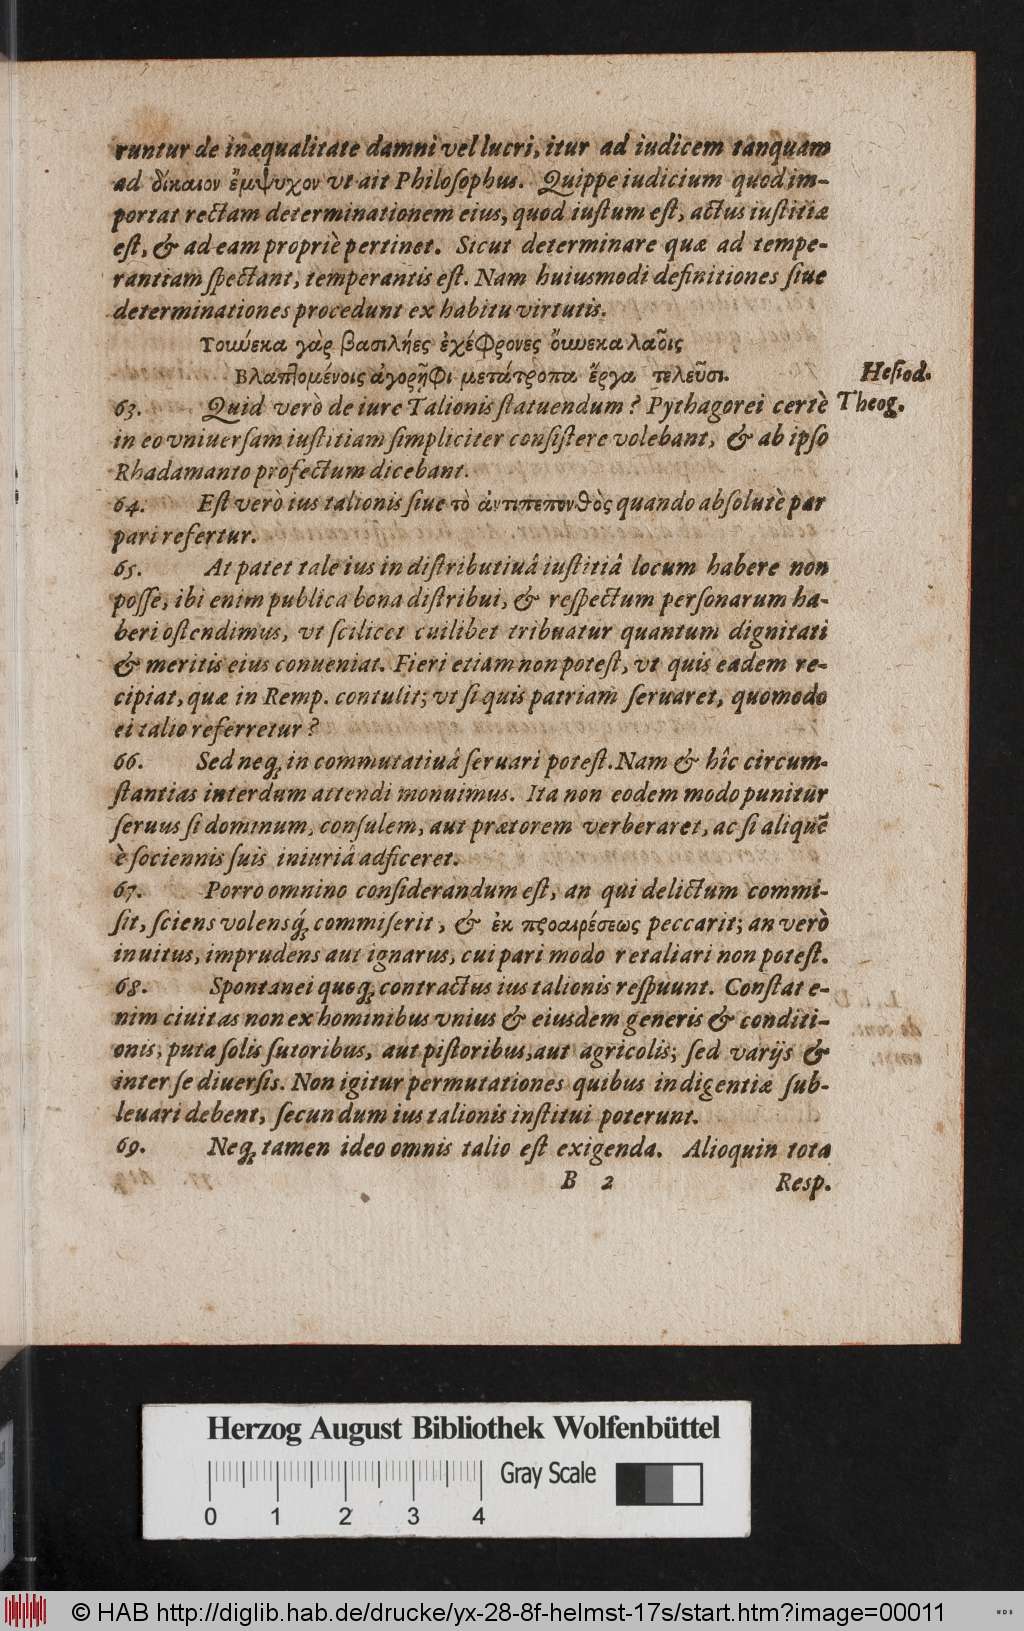 runtur de inæqualitate damni vel lucri, itur ad iudicem tanquam
ad δίκαιον ἔμψυχον vt ait Philoſophus. Quippe iudicium quod im-
portat rectam determinationem eius, quod iuſtum eſt, actus iuſtitiæ
eſt, & ad eam propriè pertinet. Sicut determinare quæ ad tempe-
rantiam ſpectant, temperantis eſt. Nam huiusmodi definitiones ſiue
determinationes procedunt ex habitu virtutis.
Τοιώεκα γὰρ βασιλῆες ἐχέφρονες ὅιωεκα λαοῖς
Βλαπτομένοις ἀγορῆφι μετάτροπα ἔργα τελεῦσι.
Heſiod.
Theog.
63. Quid verò de iure Talionis ſtatuendum? Pythagorei certè
in eo vniuerſam iuſtitiam ſimpliciter conſiſtere volebant, & ab ipſo
Rhadamanto profectum dicebant.
64. Eſt verò ius talionis ſiue τὸ ἀντιπεπονθὸς quando abſolutè par
pari refertur.
65. At patet tale ius in diſtributiuâ iuſtitiâ locum habere non
poſſe, ibi enim publica bona diſtribui, & reſpectum perſonarum ha-
beri oſtendimus, vt ſcilicet cuilibet tribuatur quantum dignitati
& meritis eius conueniat. Fieri etiam non poteſt, vt quis eadem re-
cipiat, quæ in Remp. contulit; vt ſi quis patriam ſeruaret, quomodo
ei talio referretur?
66. Sed neq; in commutatiuâ ſeruari poteſt. Nam & hîc circum-
ſtantias interdum attendi monuimus. Ita non eodem modo punitur
ſeruus ſi dominum, conſulem, aut prætorem verberaret, ac ſi aliquẽ
è ſociennis ſuis iniuriâ adficeret.
67. Porro omnino conſiderandum eſt, an qui delictum commi-
ſit, ſciens volensq́; commiſerit, & ἐκ προαιρέσεως peccarit; an verò
inuitus, imprudens aut ignarus, cui pari modo retaliari non poteſt.
68. Spontanei quoq; contractus ius talionis reſpuunt. Conſtat e-
nim ciuitas non ex hominibus vnius & eiusdem generis & conditi-
onis, puta ſolis ſutoribus, aut piſtoribus, aut agricolis; ſed varijs &
inter ſe diuerſis. Non igitur permutationes quibus indigentiæ ſub-
leuari debent, ſecundum ius talionis inſtitui poterunt.
69. Neq; tamen ideo omnis talio eſt exigenda. Alioquin tota
B 2 Resp.
Herzog August Bibliothek Wolfenbüttel
Gray Scale
0 1 2 3 4
© HAB http://diglib.hab.de/drucke/yx-28-8f-helmst-17s/start.htm?image=00011